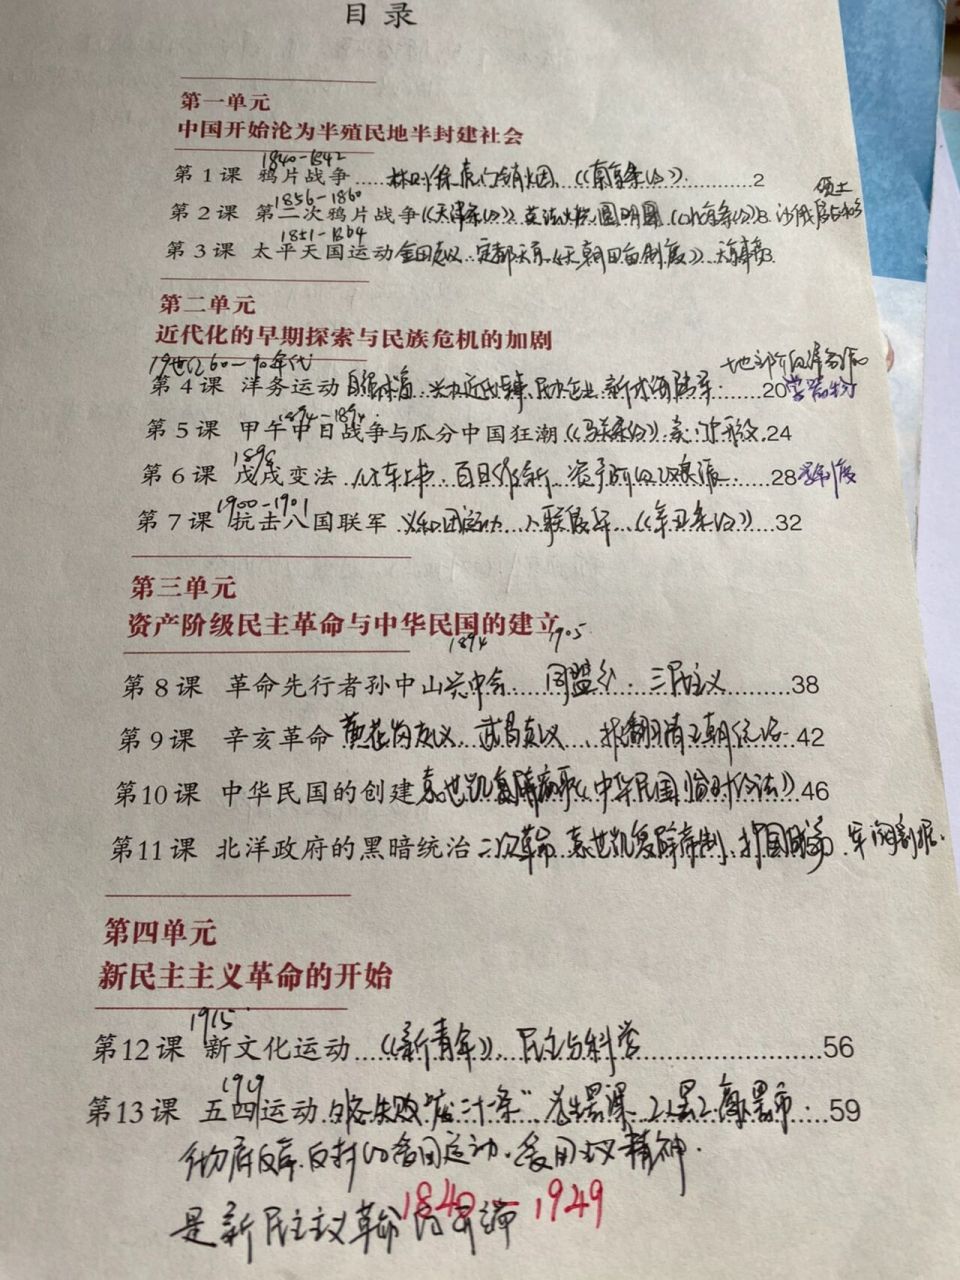 目录
第一单元
中国开始沦为半殖民地半封建社会
1840-1842
第1课 鸦片战争.....林则徐虎门销烟.《南京条约》...........2
1856-1860 领土
第2课 第二次鸦片战争《天津条约》英法火烧圆明园《北京条约》8 沙俄
1851-1864
第3课 太平天国运动金田起义.定都天京《天朝田亩制度》.天京事变13
第二单元
近代化的早期探索与民族危机的加剧
19世纪60-90年代 地主阶级洋务派
第4课 洋务运动自强求富.兴办近代军事.民办企业.新式海陆军.....20学器物
1894-
第5课 甲午中日战争与瓜分中国狂潮《马关条约》.24
1898
第6课 戊戌变法.公车上书.百日维新.资产阶级维新派....28学制度
1900-1901
第7课 抗击八国联军 义和团运动.八国联军...《辛丑条约》...32
第三单元
资产阶级民主革命与中华民国的建立
1894 1905
第8课 革命先行者孙中山兴中会.....同盟会..三民主义........38
第9课 辛亥革命 黄花岗起义.武昌起义....推翻清王朝统治.42
第10课 中华民国的创建袁世凯《中华民国临时约法》46
第11课 北洋政府的黑暗统治二次革命.袁世凯复辟帝制.护国战争.军阀割据.
第四单元
新民主主义革命的开始
1915
第12课 新文化运动...《新青年》..民主与科学......................56
1919
第13课 五四运动.外交失败"廿一条"学生罢课.工人罢工.商人罢市...59
彻底反帝.反封的爱国运动.爱国主义精神.
1840-1949
是新民主主义革命的开端